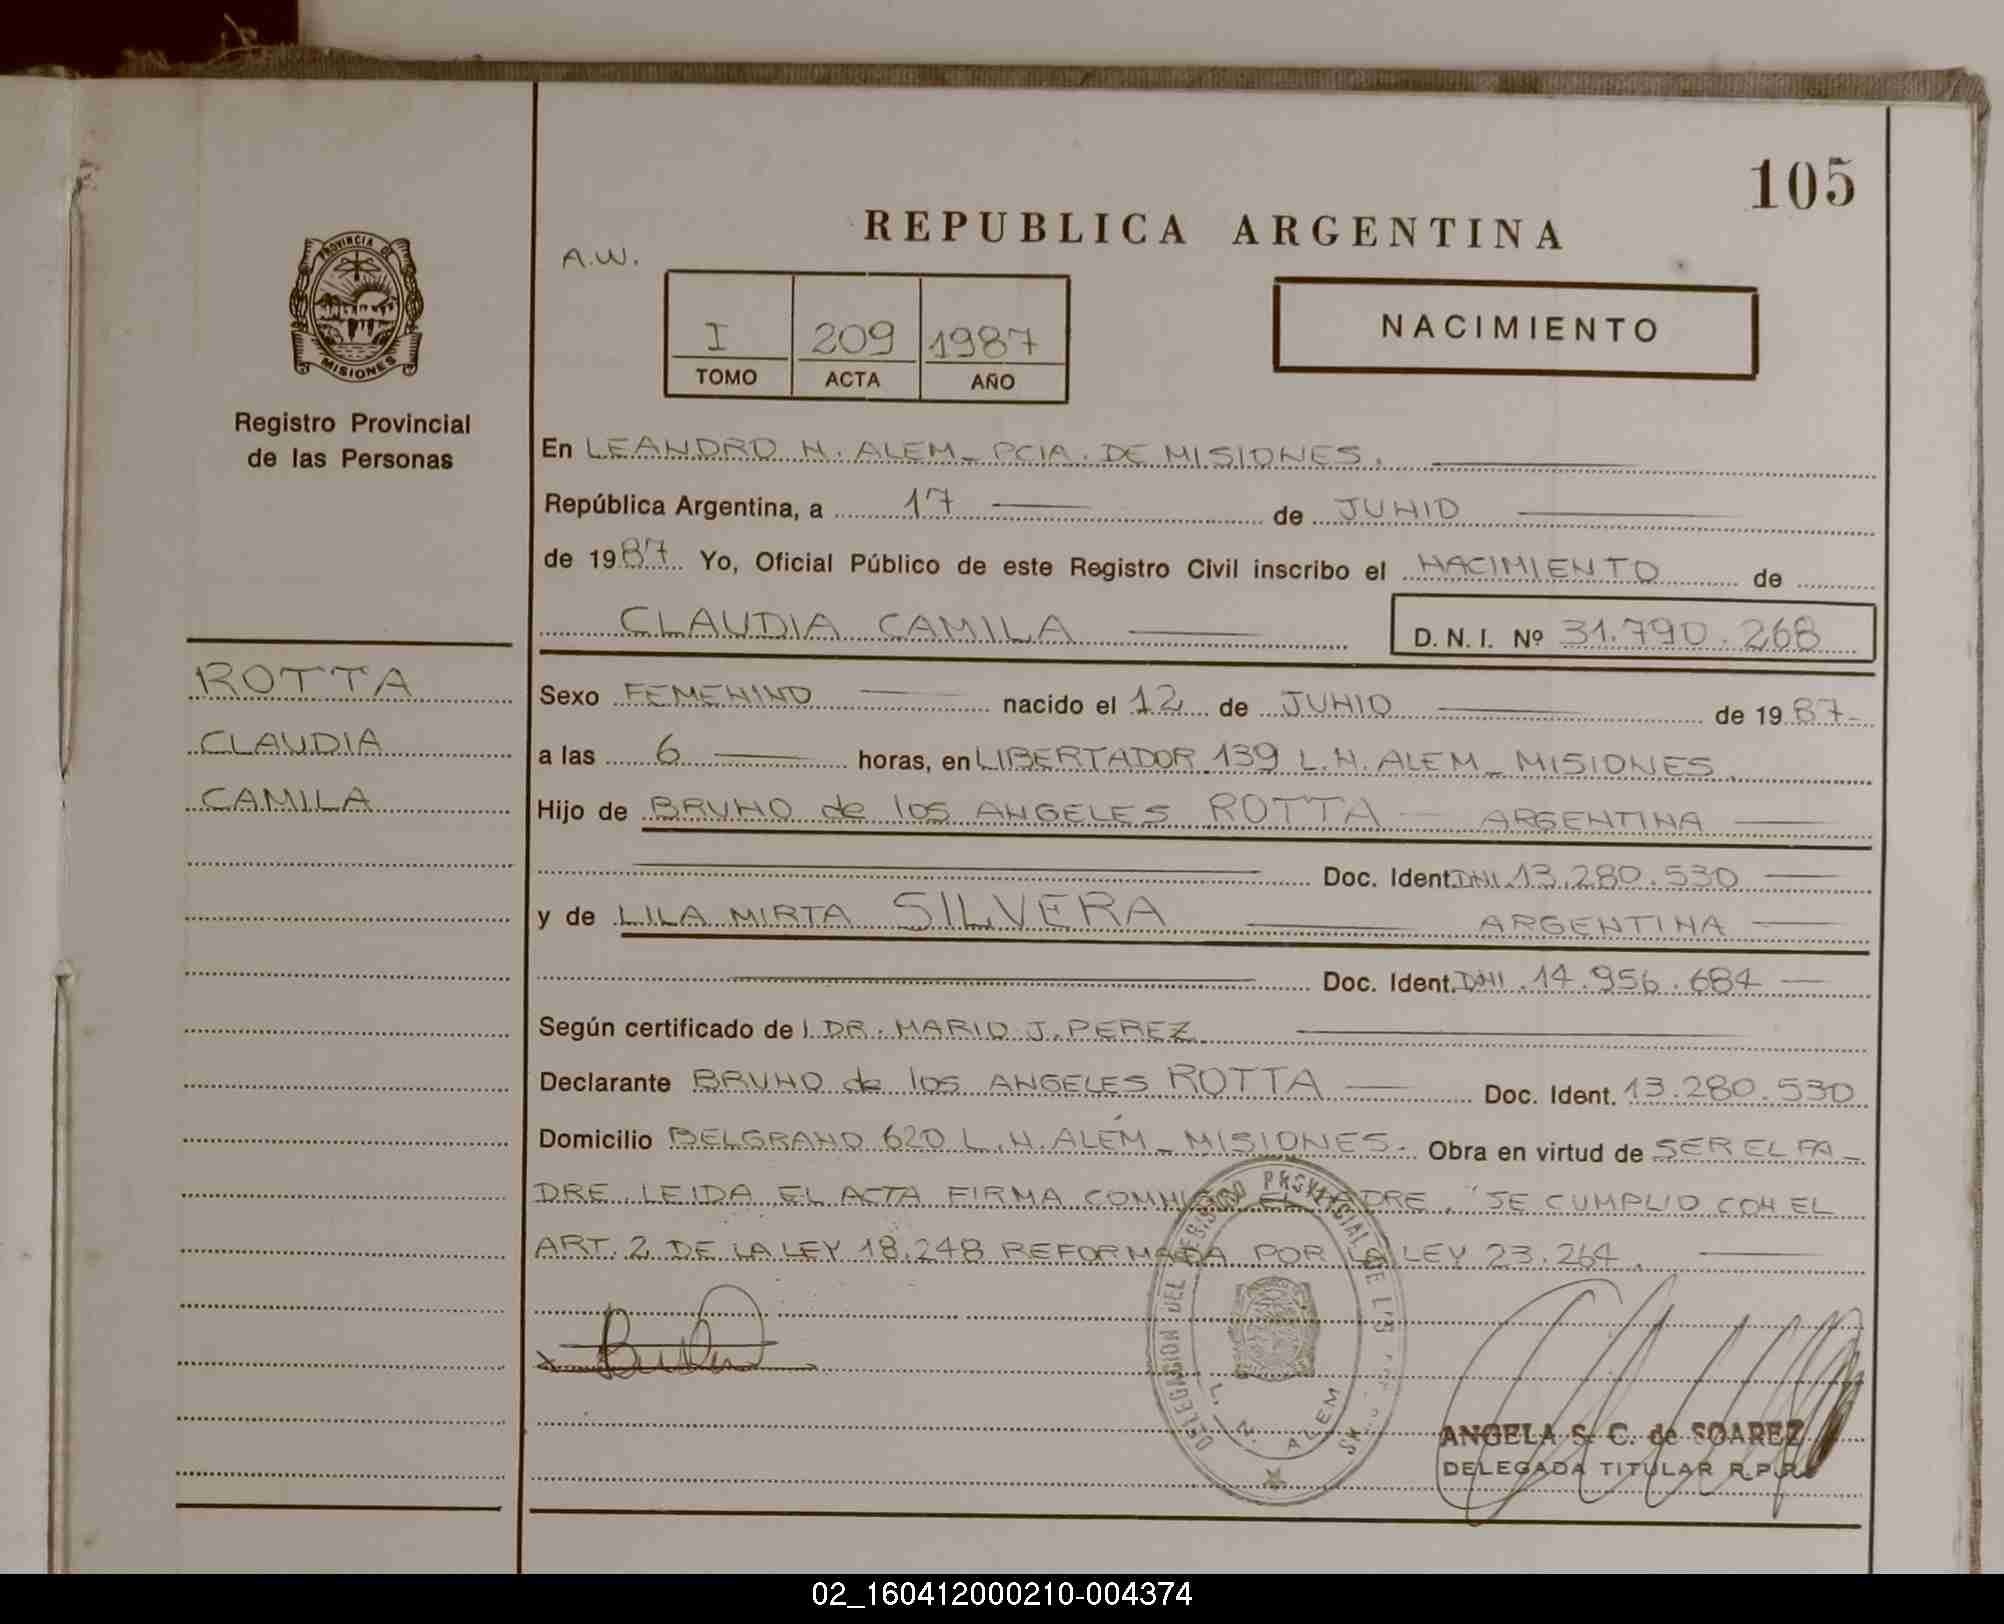 105
REPUBLICA ARGENTINA
A.W.
PROVINCIA DE
MISIONES
I 209 1987
TOMO ACTA AÑO
NACIMIENTO
Registro Provincial
de las Personas
En LEANDRO N. ALEM - PCIA. DE MISIONES.
República Argentina, a 17 de JUNIO
de 1987. Yo, Oficial Público de este Registro Civil inscribo el NACIMIENTO de
CLAUDIA CAMILA D.N.I. Nº 31.790.268
ROTTA
CLAUDIA
CAMILA
Sexo FEMENINO nacido el 12 de JUNIO de 1987-
a las 6 horas, en LIBERTADOR 139 L.N. ALEM - MISIONES.
Hijo de BRUNO de los ANGELES ROTTA - ARGENTINA
Doc. Ident. DNI. 13.280.530
y de LILA MIRTA SILVERA ARGENTINA
Doc. Ident. DNI. 14.956.684
Según certificado de DR. MARIO J. PEREZ
Declarante BRUNO de los ANGELES ROTTA Doc. Ident. 13.280.530
Domicilio BELGRANO 620 L.N. ALEM - MISIONES.- Obra en virtud de SER EL PA-
DRE. LEIDA EL ACTA FIRMA CONMIGO EL PADRE. SE CUMPLIO CON EL
ART. 2 DE LA LEY 18.248 REFORMADA POR LA LEY 23.264.
DELEGACION DEL REGISTRO PROVINCIAL DE LAS
L. N. ALEM
ANGELA S. C. de SOAREZ
DELEGADA TITULAR R.P.P.
02_160412000210-004374